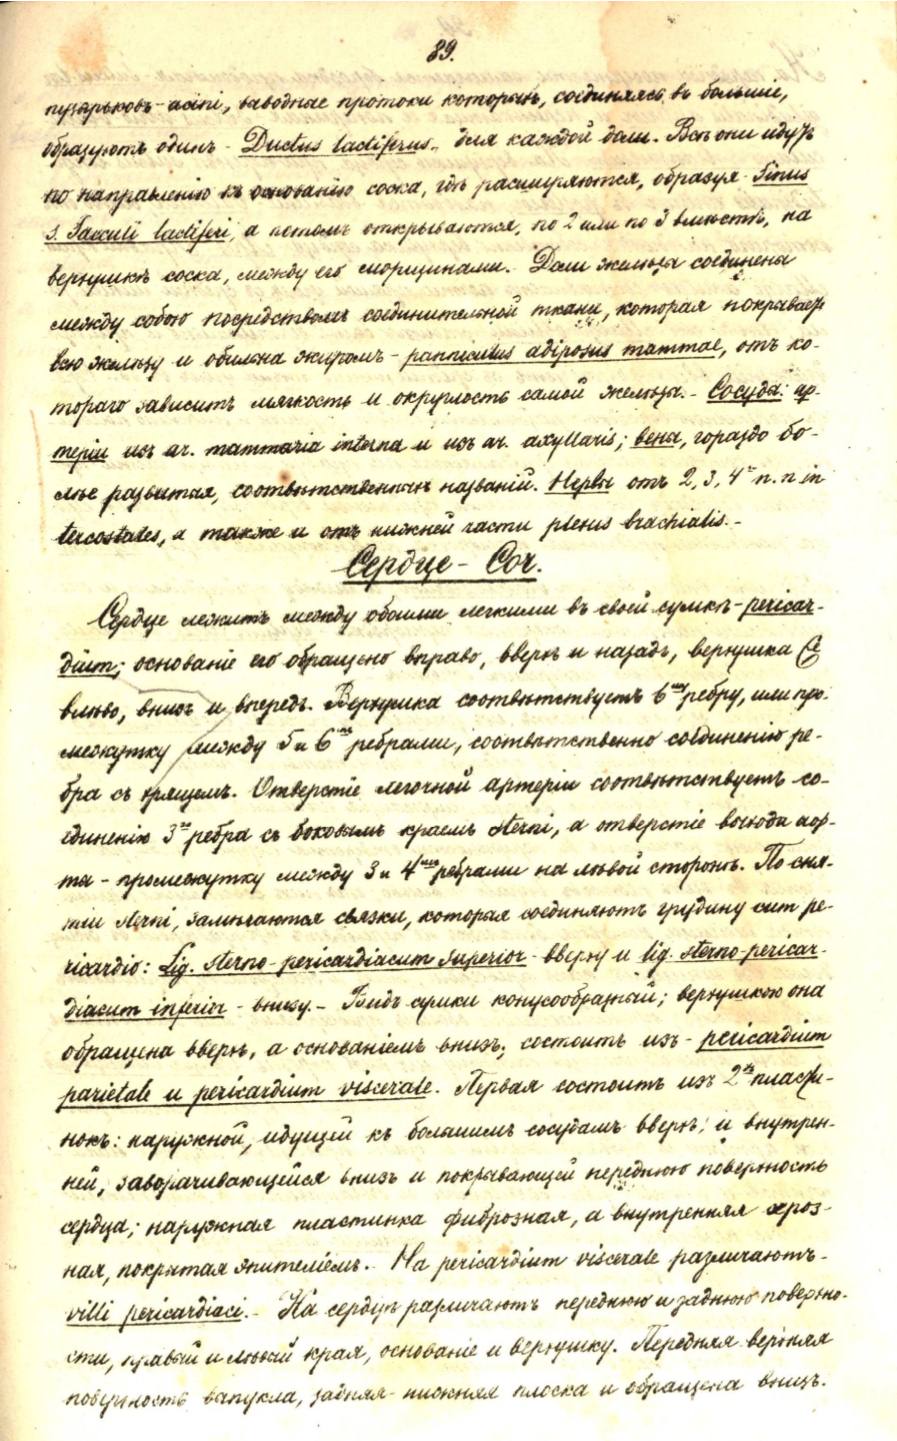 89.
пузырьковъ - acini, выводные протоки которыхъ, соединяясь въ большіе,
образуютъ одинъ - Ductus lactiferus - для каждой доли. Всѣ они идутъ
по направленію къ основанію соска, гдѣ расширяются, образуя - Sinus
s. Sacculi lactiferi, а потомъ открываются, по 2 или по 3 вмѣстѣ, на
верхушкѣ соска, между его морщинами. Доли железы соединены
между собою посредствомъ соединительной ткани, которая покрываетъ
всю железу и обильна жиромъ - panniculus adiposus mammae, отъ ко-
тораго зависитъ мягкость и округлость самой железы. - Сосуды: ар-
теріи изъ ar. mammaria interna и изъ ar. axyllaris; вены, гораздо бо-
лѣе развитыя, соотвѣтственныхъ названій. Нервы отъ 2, 3, 4 n. n in
tercostales, а также и отъ нижней части plexus brachialis. -
Сердце - Cor.
Сердце лежитъ между обоими легкими въ своей сумкѣ - pericar-
dium; основаніе его обращено вправо, вверхъ и назадъ, верхушка
влѣво, внизъ и впередъ. Верхушка соотвѣтствуетъ 6му ребру, или про-
межутку между 5 и 6мъ ребрами, соотвѣтственно соединенію ре-
бра съ хрящемъ. Отверстіе легочной артеріи соотвѣтствуетъ со-
единенію 3го ребра съ боковымъ краемъ sterni, а отверстіе выхода аор-
ты - промежутку между 3 и 4мъ ребрами на лѣвой сторонѣ. По сня-
тіи sterni, замѣчаются связки, которыя соединяютъ грудину cum pe-
ricardio: Lig. sterno-pericardiacum superior - вверху и lig. sterno-pericar-
diacum inferior - внизу. - Видъ сумки конусообразный; верхушкою она
обращена вверхъ, а основаніемъ внизъ; состоитъ изъ - pericardium
parietale и pericardium viscerale. Первая состоитъ изъ 2хъ пласти-
нокъ: наружной, идущей къ большимъ сосудамъ вверхъ; и внутрен-
ней, заворачивающейся внизъ и покрывающей переднюю поверхность
сердца; наружная пластинка фиброзная, а внутренняя сероз-
ная, покрытая эпителіемъ. - На pericardium viscerale различаютъ -
villi pericardiaci. - На сердцѣ различаютъ переднюю и заднюю поверхно-
сти, правый и лѣвый края, основаніе и верхушку. Передняя верхняя
поверхность выпукла, задняя - нижняя плоска и обращена внизъ.